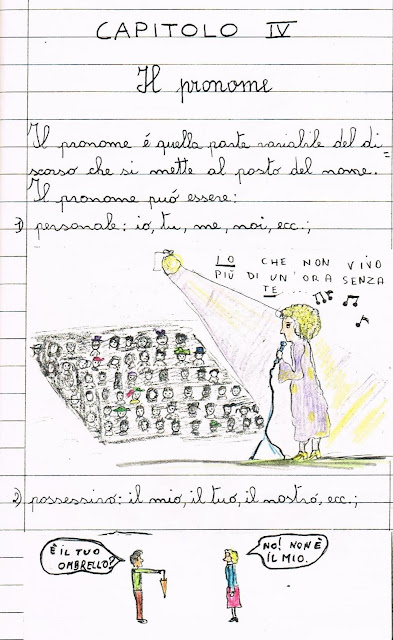 CAPITOLO IV
Il pronome
Il pronome é quella parte variabile del di=
scorso che si mette al posto del nome.
Il pronome puó essere:
1) personale: io, tu, me, noi, ecc.;
IO CHE NON VIVO
PIÙ DI UN'ORA SENZA
TE....
2) possessivo: il mio, il tuo, il nostro, ecc.;
È IL TUO
OMBRELLO?
NO! NON È
IL MIO.